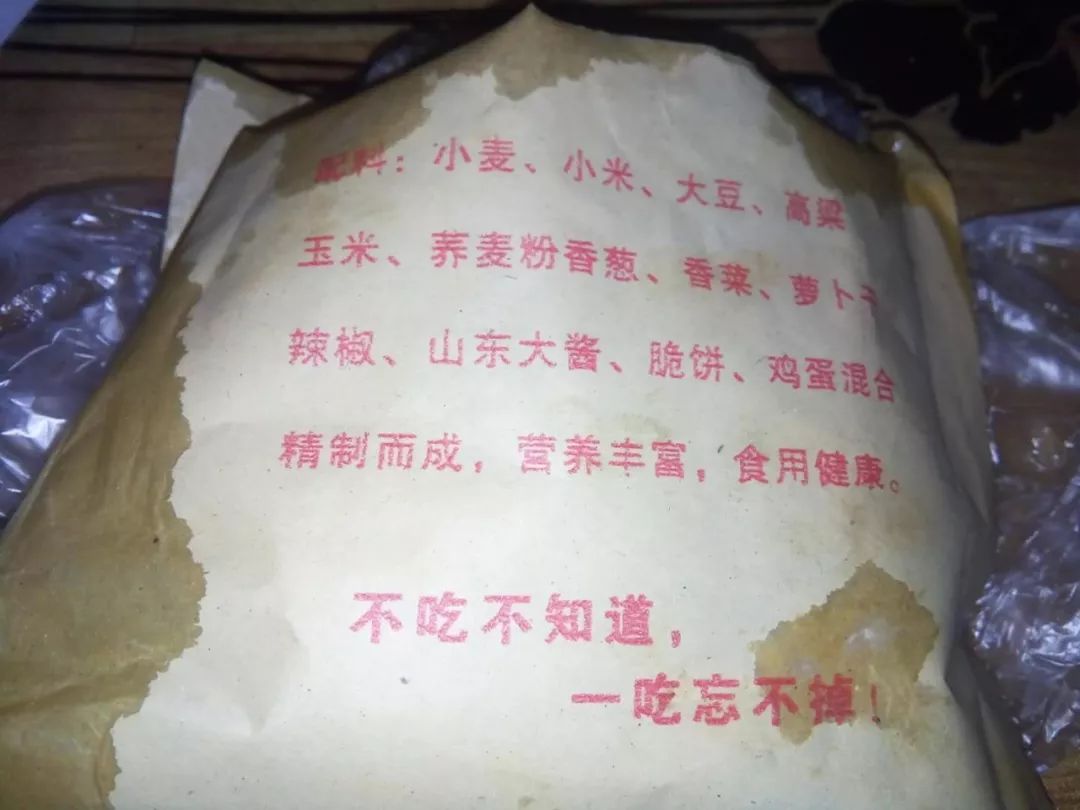 配料：小麦、小米、大豆、高梁
玉米、荞麦粉香葱、香菜、萝卜干
辣椒、山东大酱、脆饼、鸡蛋混合
精制而成，营养丰富，食用健康。
不吃不知道，
一吃忘不掉！